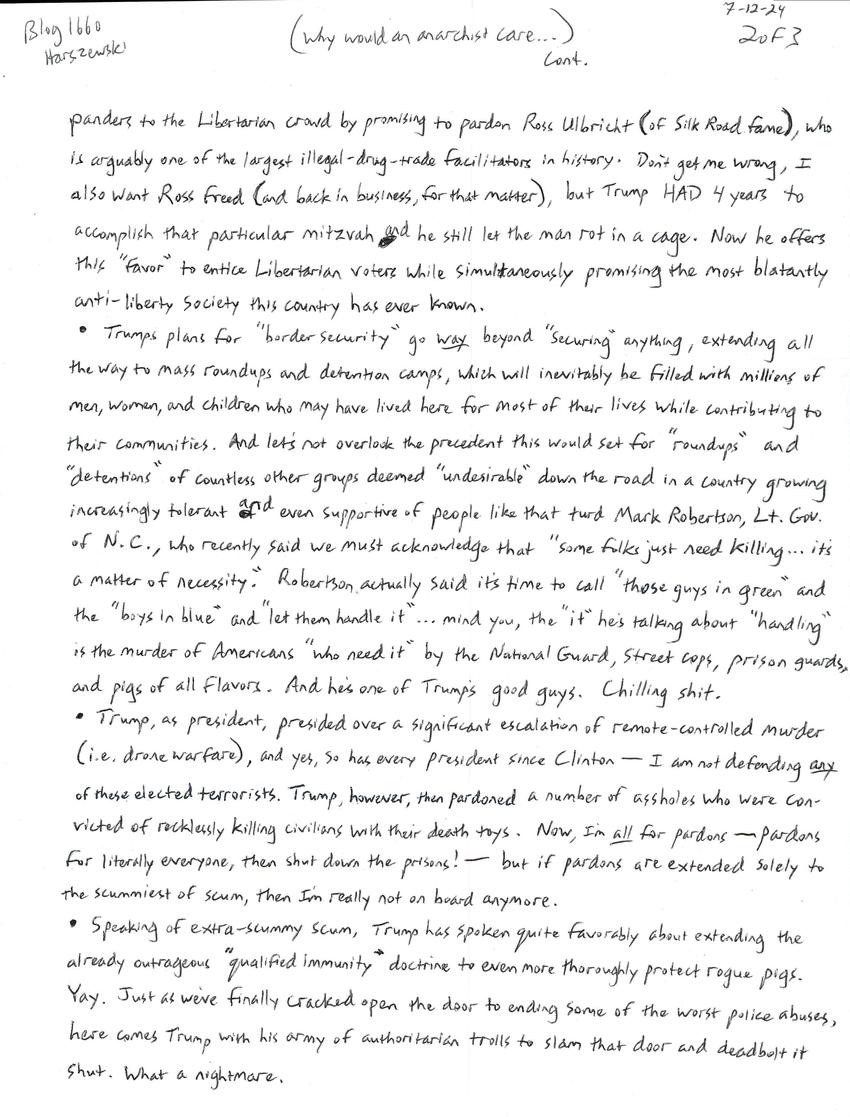 7-12-24
Blog 1660
Harszewski
(why would an anarchist care...)
cont.
2 of 3
panders to the Libertarian crowd by promising to pardon Ross Ulbricht (of Silk Road fame), who
is arguably one of the largest illegal-drug-trade facilitators in history. Don't get me wrong, I
also want Ross freed (and back in business, for that matter), but Trump HAD 4 years to
accomplish that particular mitzvah and he still let the man rot in a cage. Now he offers
this "favor" to entice Libertarian voters while simultaneously promising the most blatantly
anti-liberty society this country has ever known.
• Trump's plans for "border security" go way beyond "securing" anything, extending all
the way to mass roundups and detention camps, which will inevitably be filled with millions of
men, women, and children who may have lived here for most of their lives while contributing to
their communities. And let's not overlook the precedent this would set for "roundups" and
"detentions" of countless other groups deemed "undesirable" down the road in a country growing
increasingly tolerant and even supportive of people like that turd Mark Robertson, Lt. Gov.
of N.C., who recently said we must acknowledge that "some folks just need killing... it's
a matter of necessity." Robertson actually said it's time to call "those guys in green" and
the "boys in blue" and "let them handle it"... mind you, the "it" he's talking about "handling"
is the murder of Americans "who need it" by the National Guard, street cops, prison guards,
and pigs of all flavors. And he's one of Trump's good guys. Chilling shit.
• Trump, as president, presided over a significant escalation of remote-controlled murder
(i.e. drone warfare), and yes, so has every president since Clinton — I am not defending any
of these elected terrorists. Trump, however, then pardoned a number of assholes who were con-
victed of recklessly killing civilians with their death toys. Now, I'm all for pardons — pardons
for literally everyone, then shut down the prisons! — but if pardons are extended solely to
the scummiest of scum, then I'm really not on board anymore.
• Speaking of extra-scummy scum, Trump has spoken quite favorably about extending the
already outrageous "qualified immunity" doctrine to even more thoroughly protect rogue pigs.
Yay. Just as we've finally cracked open the door to ending some of the worst police abuses,
here comes Trump with his army of authoritarian trolls to slam that door and deadbolt it
shut. What a nightmare.